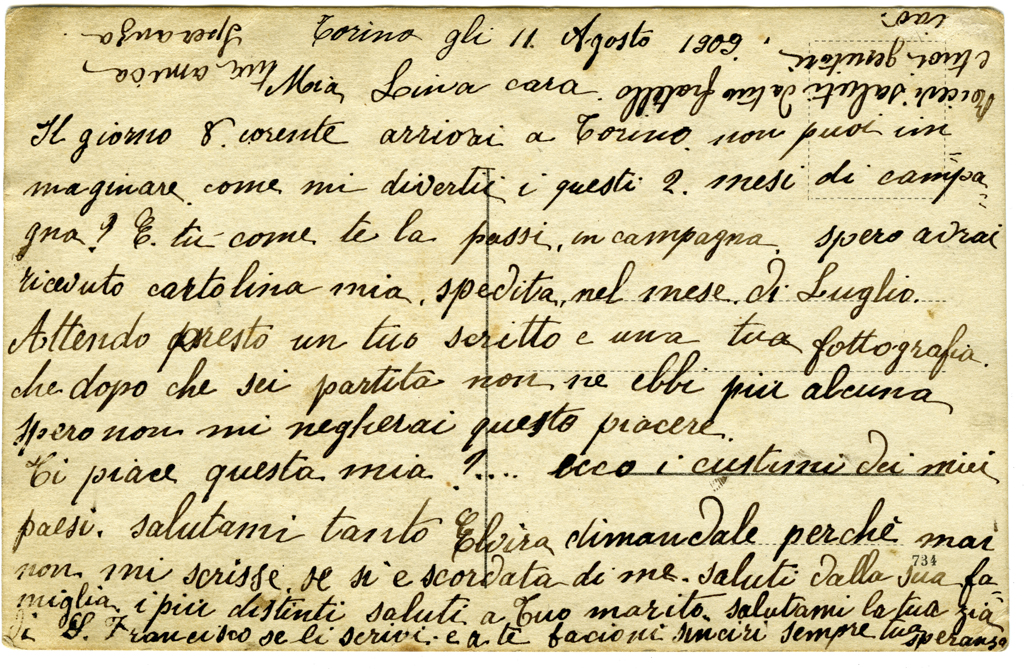 Torino gli 11. Agosto 1909.
Mia Lina cara.
Il giorno 8. corente arrivai a Torino. non puoi im
maginare come mi divertii i questi 2. mesi di campa=
gna? E. tu come te la passi, in campagna. spero avrai
ricevuto cartolina mia, spedita, nel mese di Luglio.
Attendo presto un tuo scritto e una tua fottografia.
che dopo che sei partita non ne ebbi piu alcuna
spero non mi negherai questo piacere.
Ti piace questa mia?.... ecco i custimi dei miei
paesi. salutami tanto Elvira dimandale perchè mai
non mi scrisse, se si e scordata di me. saluti dalla sua fa=
miglia. i piu distinti saluti a Tuo marito. salutami la tua zia
di S. Francisco se li scrivi. e a te bacioni sinciri sempre tua
speranza
734
Ricevi saluti da tuo fratello
e tuoi genitori
ciao.
tua amica
Speranza